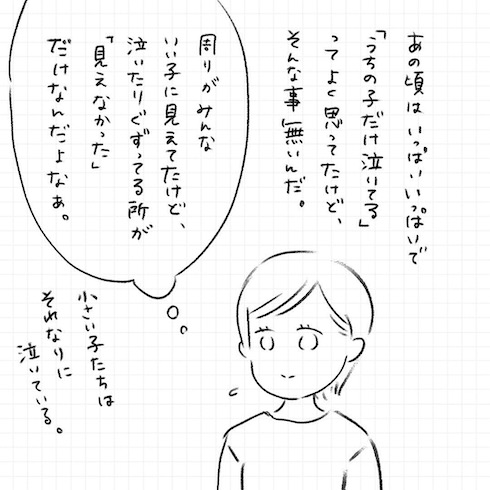 あの頃はいっぱいいっぱいで
「うちの子だけ泣いてる」
ってよく思ってたけど、
そんな事無いんだ。
周りがみんな
いい子に見えてたけど、
泣いたりぐずってる所が
「見えなかった」
だけなんだよなぁ。
小さい子たちは
それなりに
泣いている。